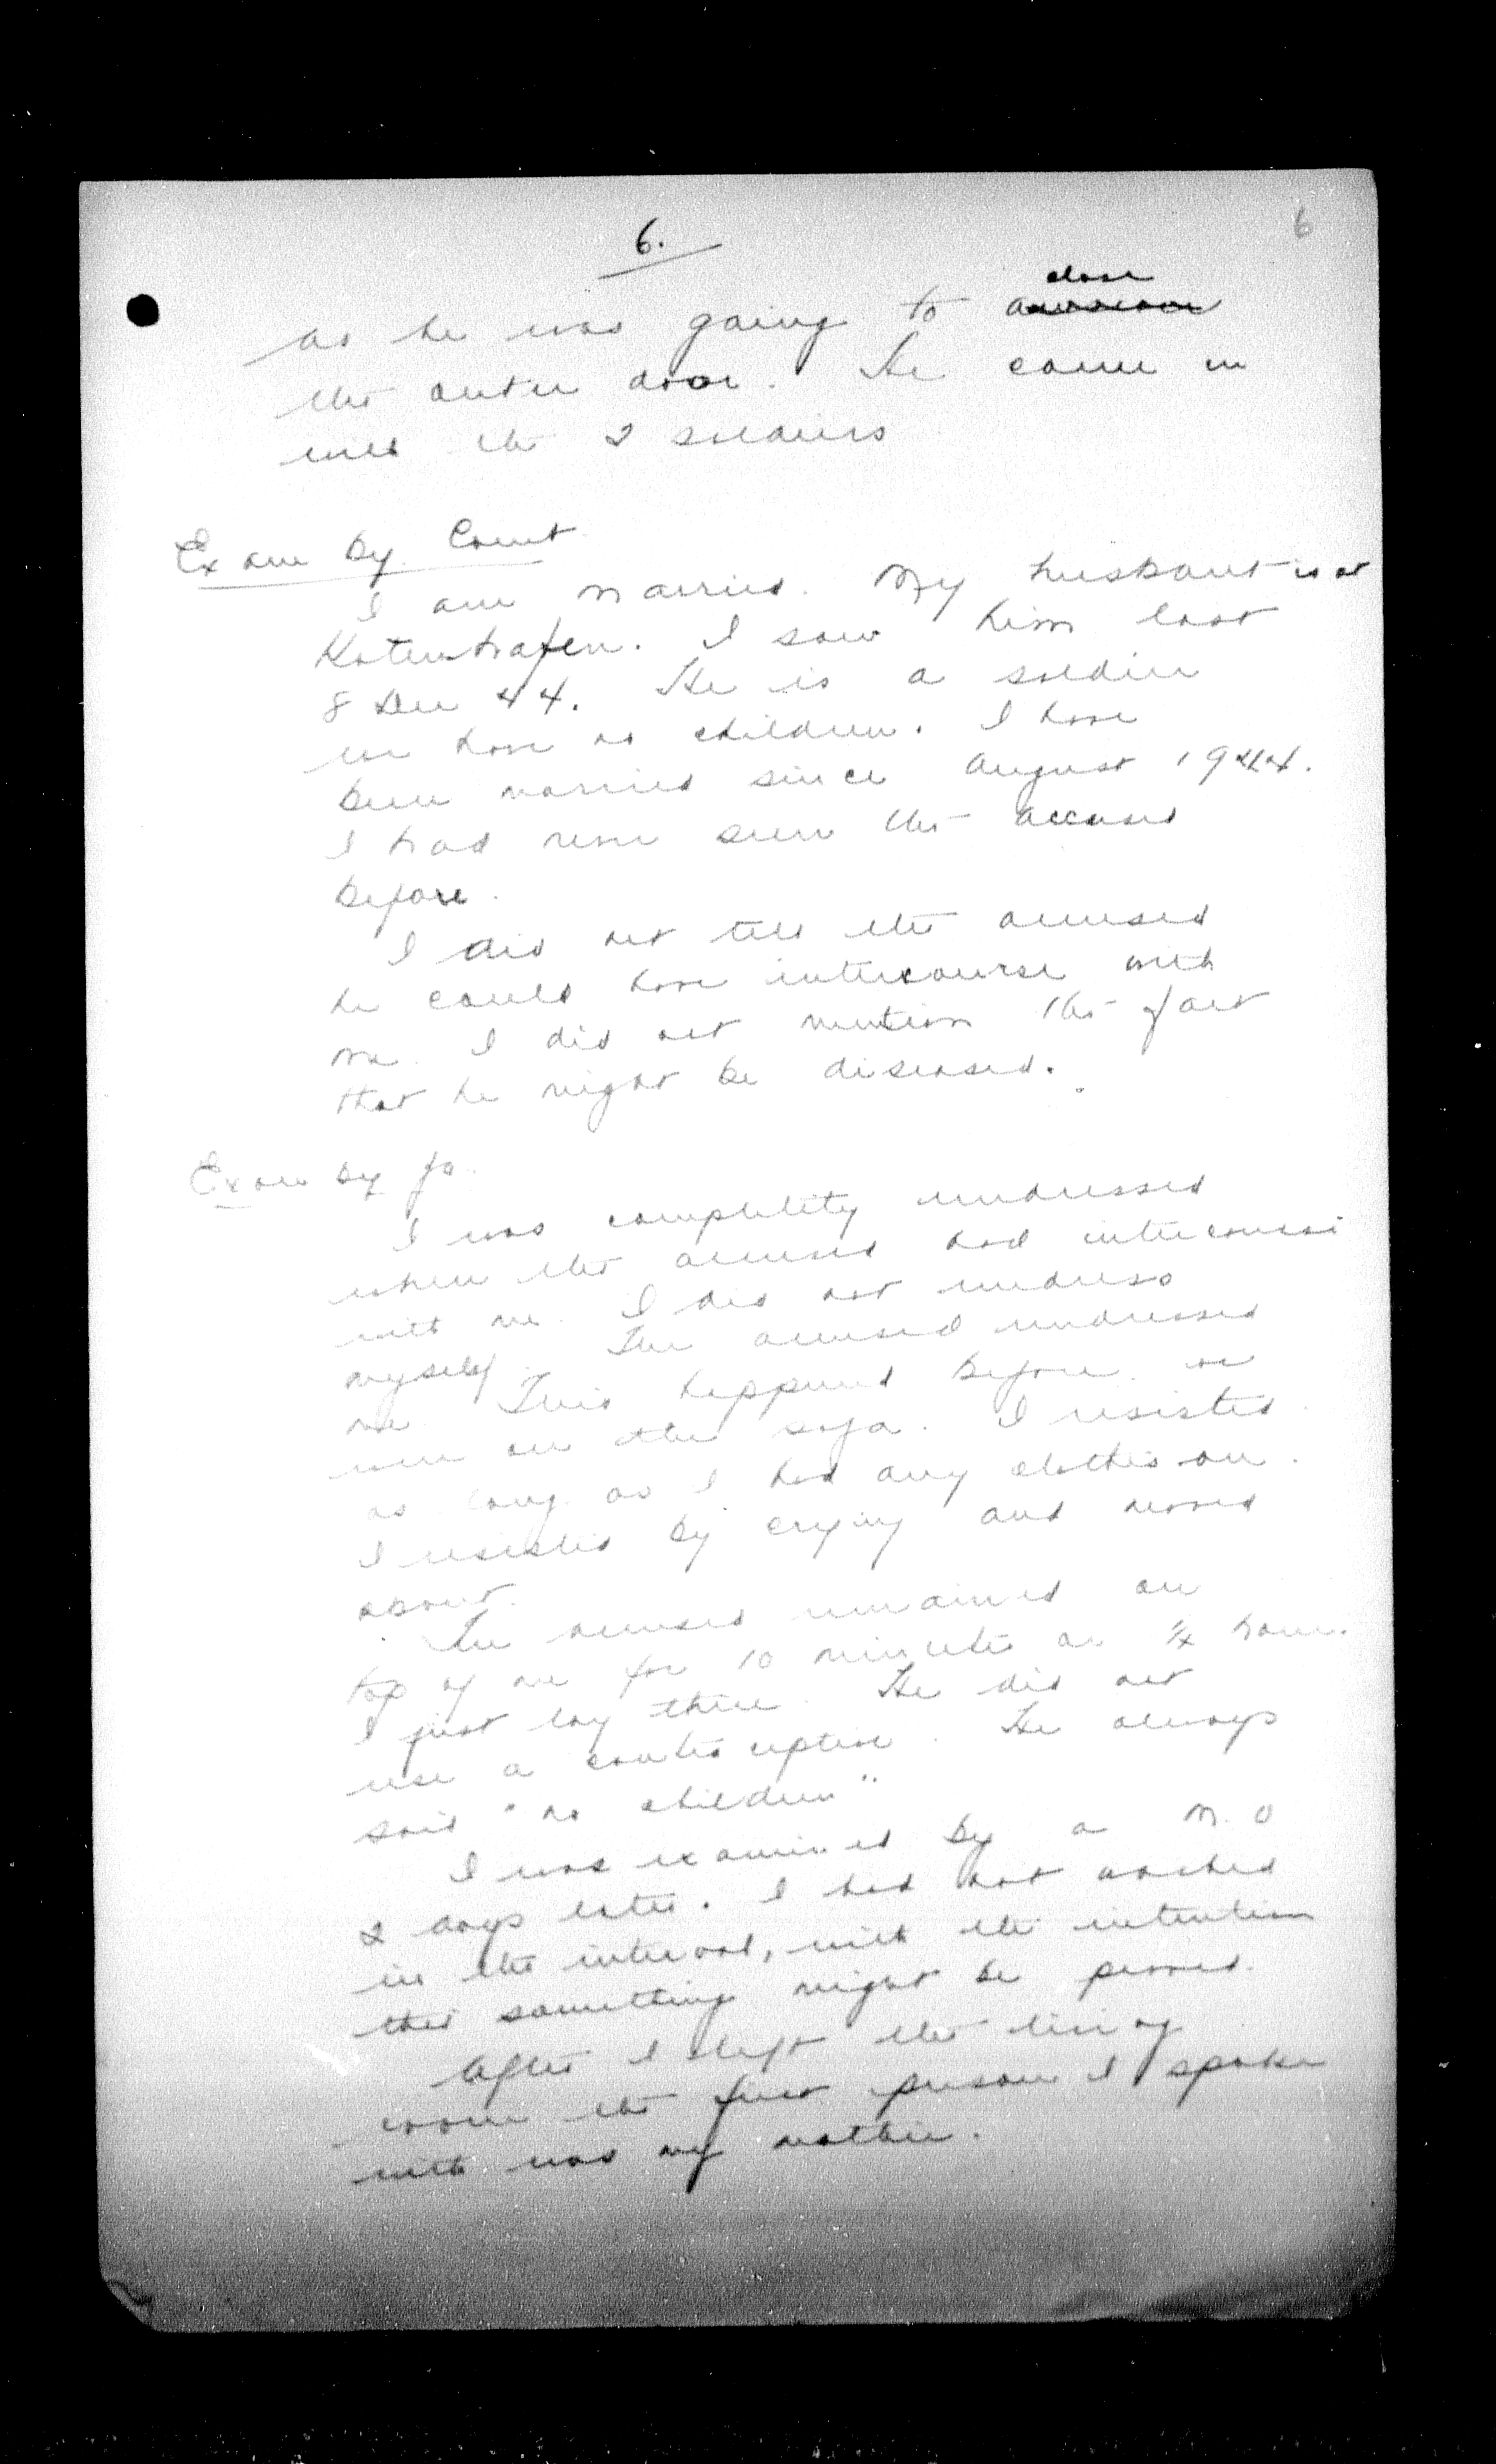 6.
6
close
as he was going to
the outer door. He came in
with the 2 soldiers
Exam by Court
I am married. My husband is at
Kotenhafen. I saw him last
8 Dec 44. He is a soldier
we have no children. I have
been married since August 1944.
I had never seen the accused
before.
I did not tell the accused
he could have intercourse with
me. I did not mention the fact
that he might be diseased.
Exam by Ja.
I was completity undressed
when the accused had intercourse
with me. I did not undress
myself. The accused undressed
me. This happened before we
were on the sofa. I resisted
as long as I had any clothes on.
I resisted by crying and moved
about.
The accused remained on
top of me for 10 minutes or ¼ hour.
I just lay there. He did not
use a contraceptive. He always
said "no children"
I was examined by a M.O
2 days later. I had not washed
in the interval, with the intention
that something might be proved.
After I left the living
room the first person I spoke
with was my mother.